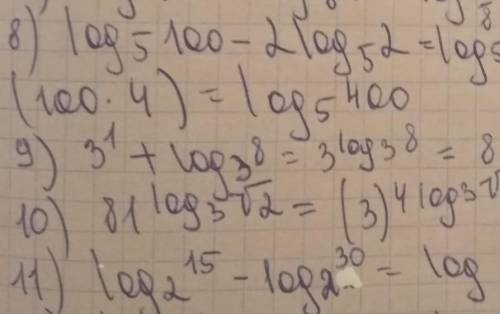 8) log₅ 100 - 2 log₅ 2 = log₅
(100 · 4) = log₅ 400
9) 3¹ + log₃ 8 = 3^log₃ 8 = 8
10) 81^log₃ √2 = (3)^4 log₃ √
11) log₂ 15 - log₂ 30 = log